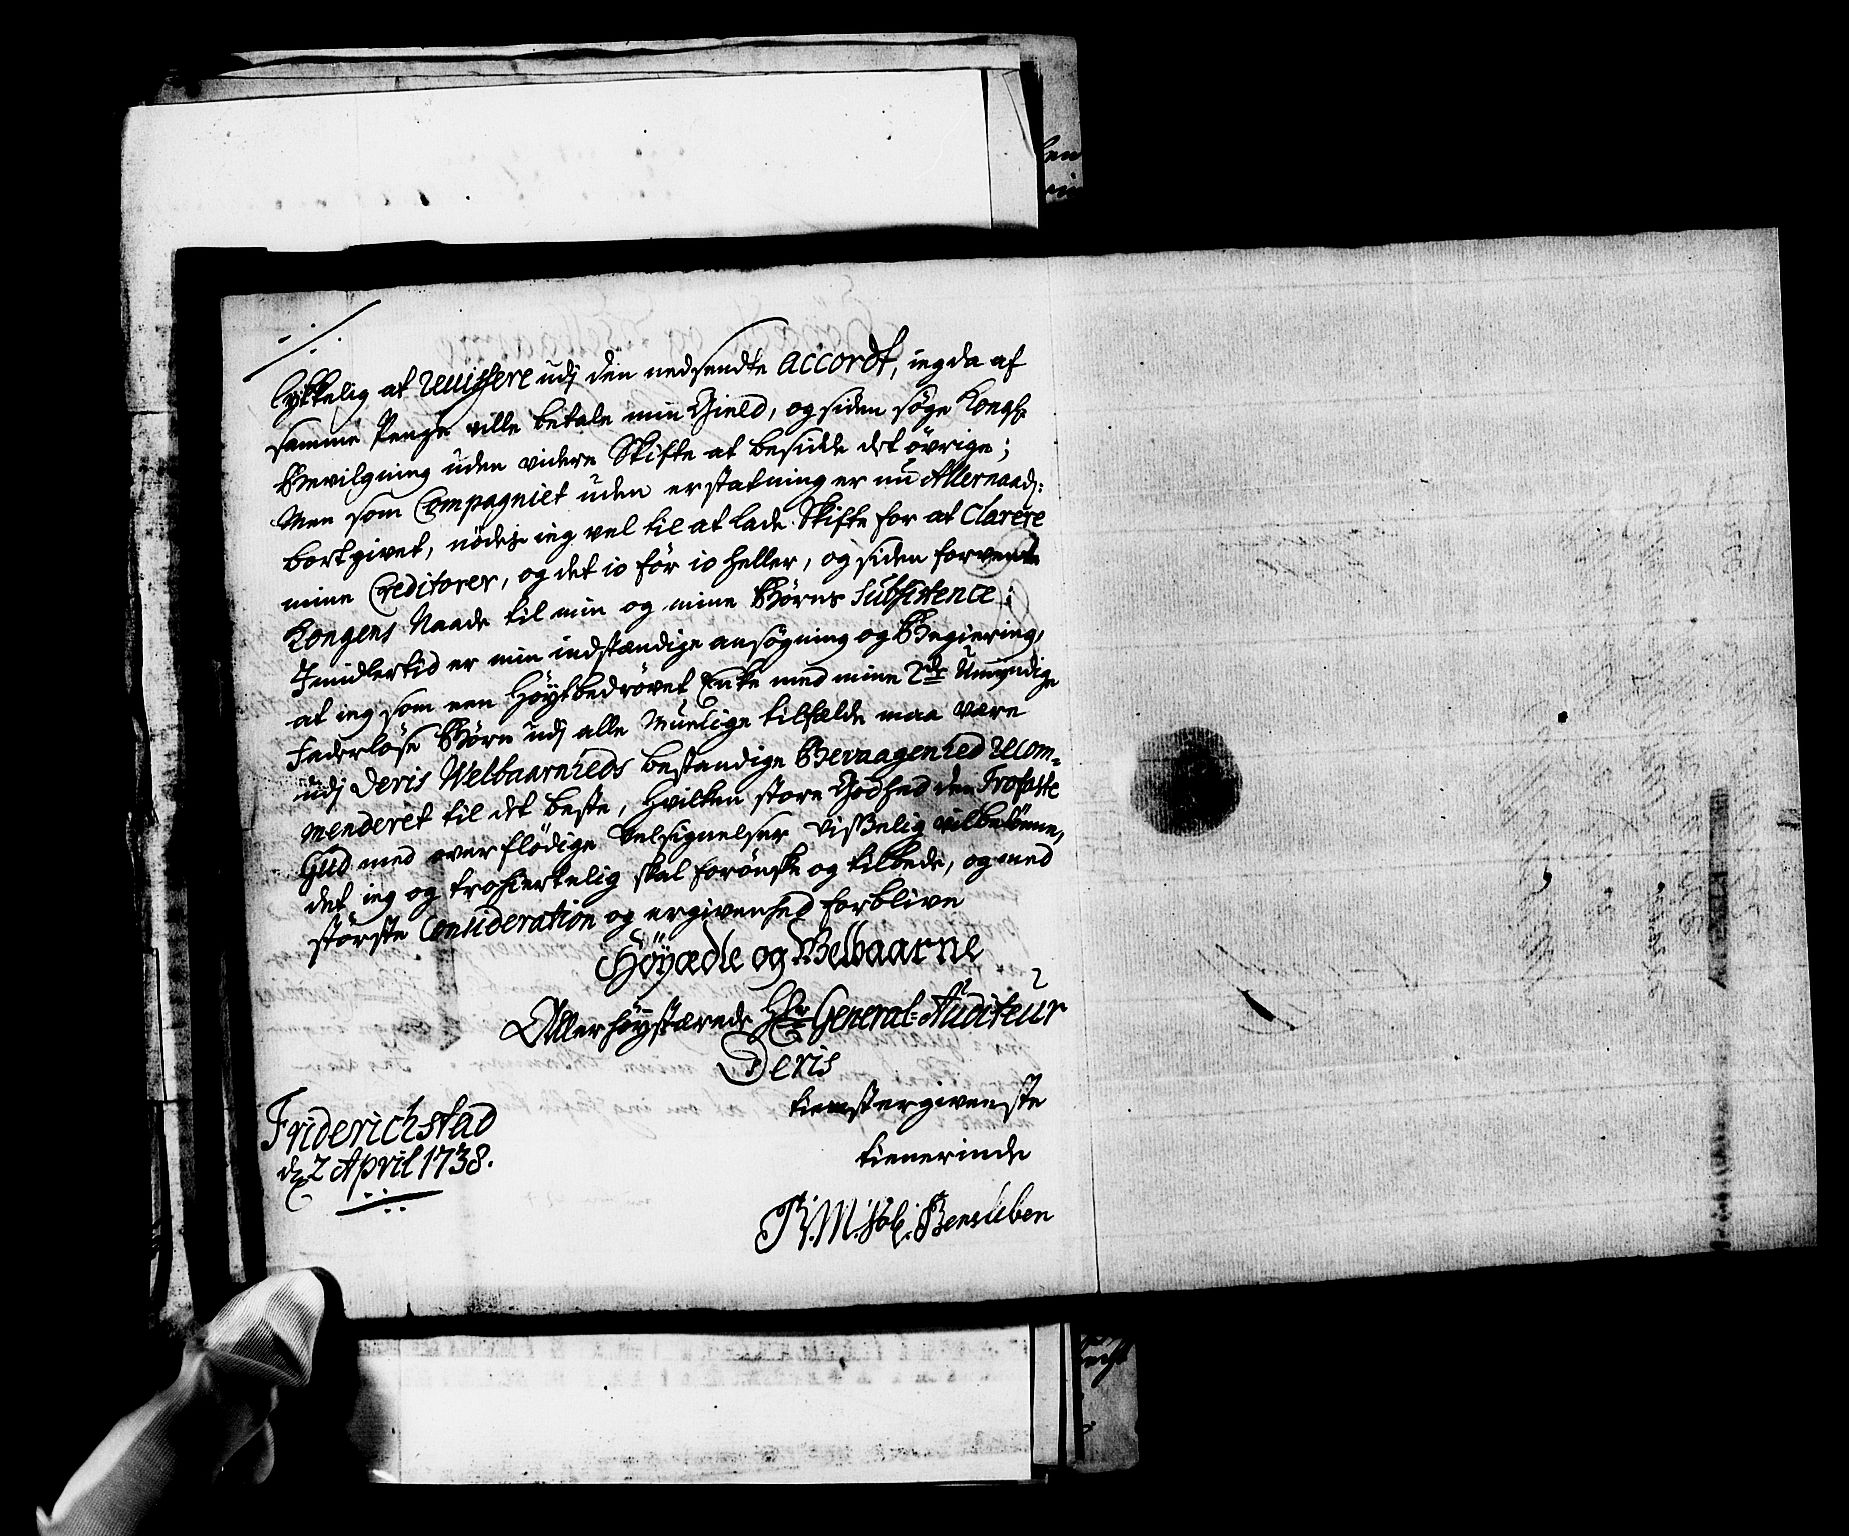 lykkelig at reuissere udj den nedsendte accordt, ieg da af
samme Penge ville betale min Gield, og siden søge Kongl.
Bevilgning uden videre Skifte at besidde det øvrige;
Men som Compagniet uden erstatning er nu Allernaad:
bortgivet, nødes ieg vel til at lade Skifte for at Clarere
mine Creditorer, og det io før io heller, og siden forvente
Kongens Naade til min og mine Børns Subsistence;
Imidlertid er min indstændige ansøgning og Begiering,
at ieg som een Høyt bedrøvet Enke med mine 2de Umyndige
Faderløse Børn udj alle Muelige tilfælde maa være
udj Deris Welbaarnheds bestandige Bevaagenhed recom-
menderet til det beste, hvilken store Godhed den Trofaste
Gud med overflødige velsignelser visselig vil belønne,
det ieg og trohiertelig skal forønske og tilbede, og med
største Consideration og ergivenhed forblive
Høyædle og Velbaarne
Allerhøystærede Hr General-Auditeur
Deris
tienstergivenste
tienerinde
Friderichstad
d 2 April 1738.